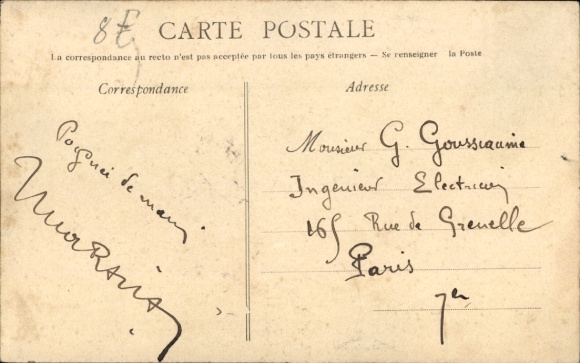 8F
CARTE POSTALE
La correspondance au recto n'est pas acceptée par tous les pays étrangers — Se renseigner la Poste
Correspondance
Adresse
Poignée de main
Monsieur G. Gousseaume
Ingenieur Electricien
165 Rue de Grenelle
Paris
7e